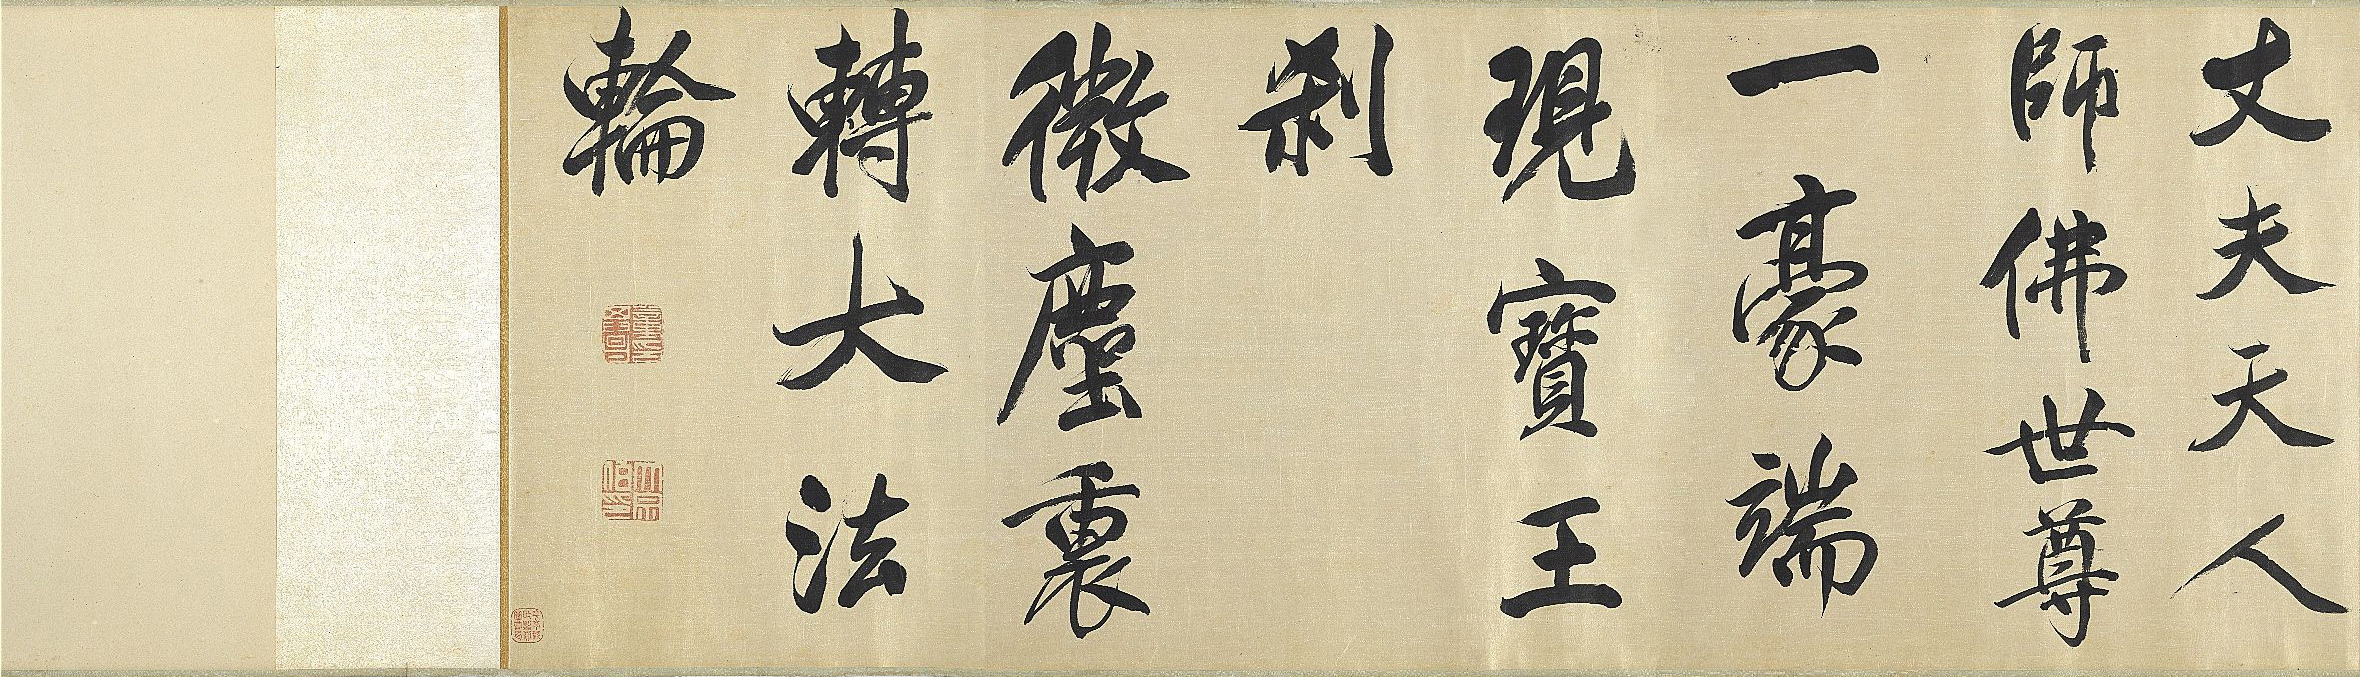 丈夫天人
師佛世尊
一豪端
現寶王
剎
微塵裏
轉大法
輪